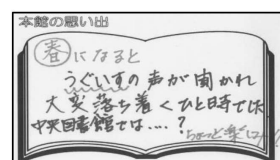 本館の思い出
春になると
うぐいすの声が聞かれ
大変落ち着くひと時では
中央図書館では....?
ちょっと楽しみ